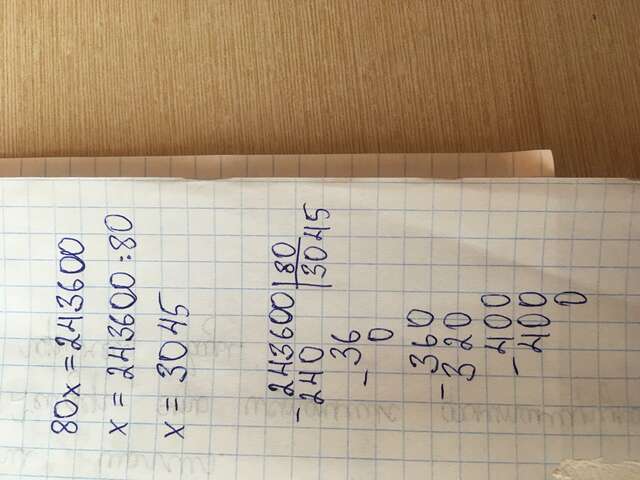 80x = 243600
x = 243600 : 80
x = 3045
- 243600 | 80
240 | 3045
- 36
0
- 360
320
- 400
400
0